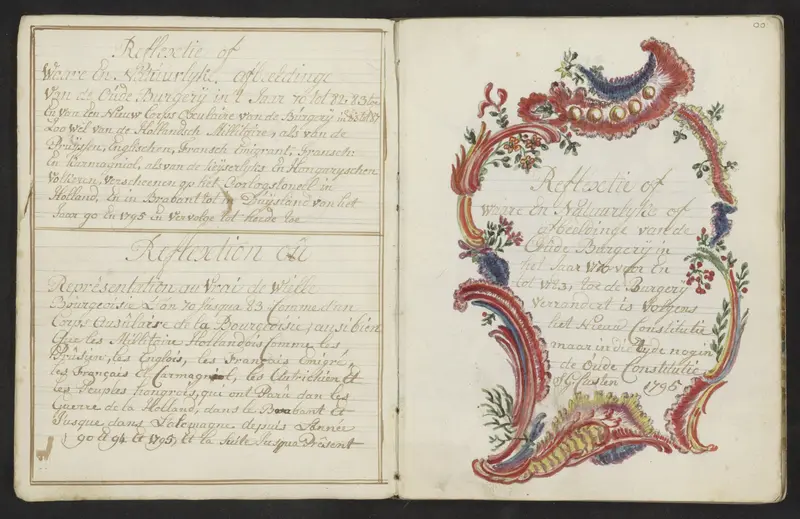 Reflextie of
Waare En Natuurlyke, afbeeldinge
van de Oude Burgery in 't Jaar 70 tot 82, 83 toe
En van Een Nieuw Corps Oculaire van de Burgery in
Zoo Wel van de Hollandsche Millitaire, als van de
Pruysen, Englischen, Fransch Emigranti, Fransch:
En Karmagniol, als van de Keyserlyke En Hongaryschen
Volkeren, Verscheenen op het Oorlogstoneel in
Holland, En in Brabant tot in Duysland van het
Jaar 90 En 1795 En vervolge tot heede toe
Reflextion oú
Représentation au vrai de Wielle
Bourgeoisie L'an 70 Jusqus 83 Comme d'un
Corps de la Bourgeoisie, ausi bien
Que les Millitaire Hollandois Comme les
Prusijn, les Englois, les Français Emigré,
les Français et Carmagniol, les Autrichien et
les Peuples hongrois, qui ont Parú dan les
Guerre de la Holland, dans le Brabant et
Jusque dans L'alemagne depuis L'année
90 et 94 et 1795 et la Suite Jusqua Présent
Reflextie of
waare En Natuurlyke of
afbeeldinge van de
Oude Burgery in
het Jaar 1770 voor En
tot 1783, toe de Burgery
verrandert is volgens
het Nieuw Constitutie
maar in die Tyde nog in
de Oude Constitutie
1795